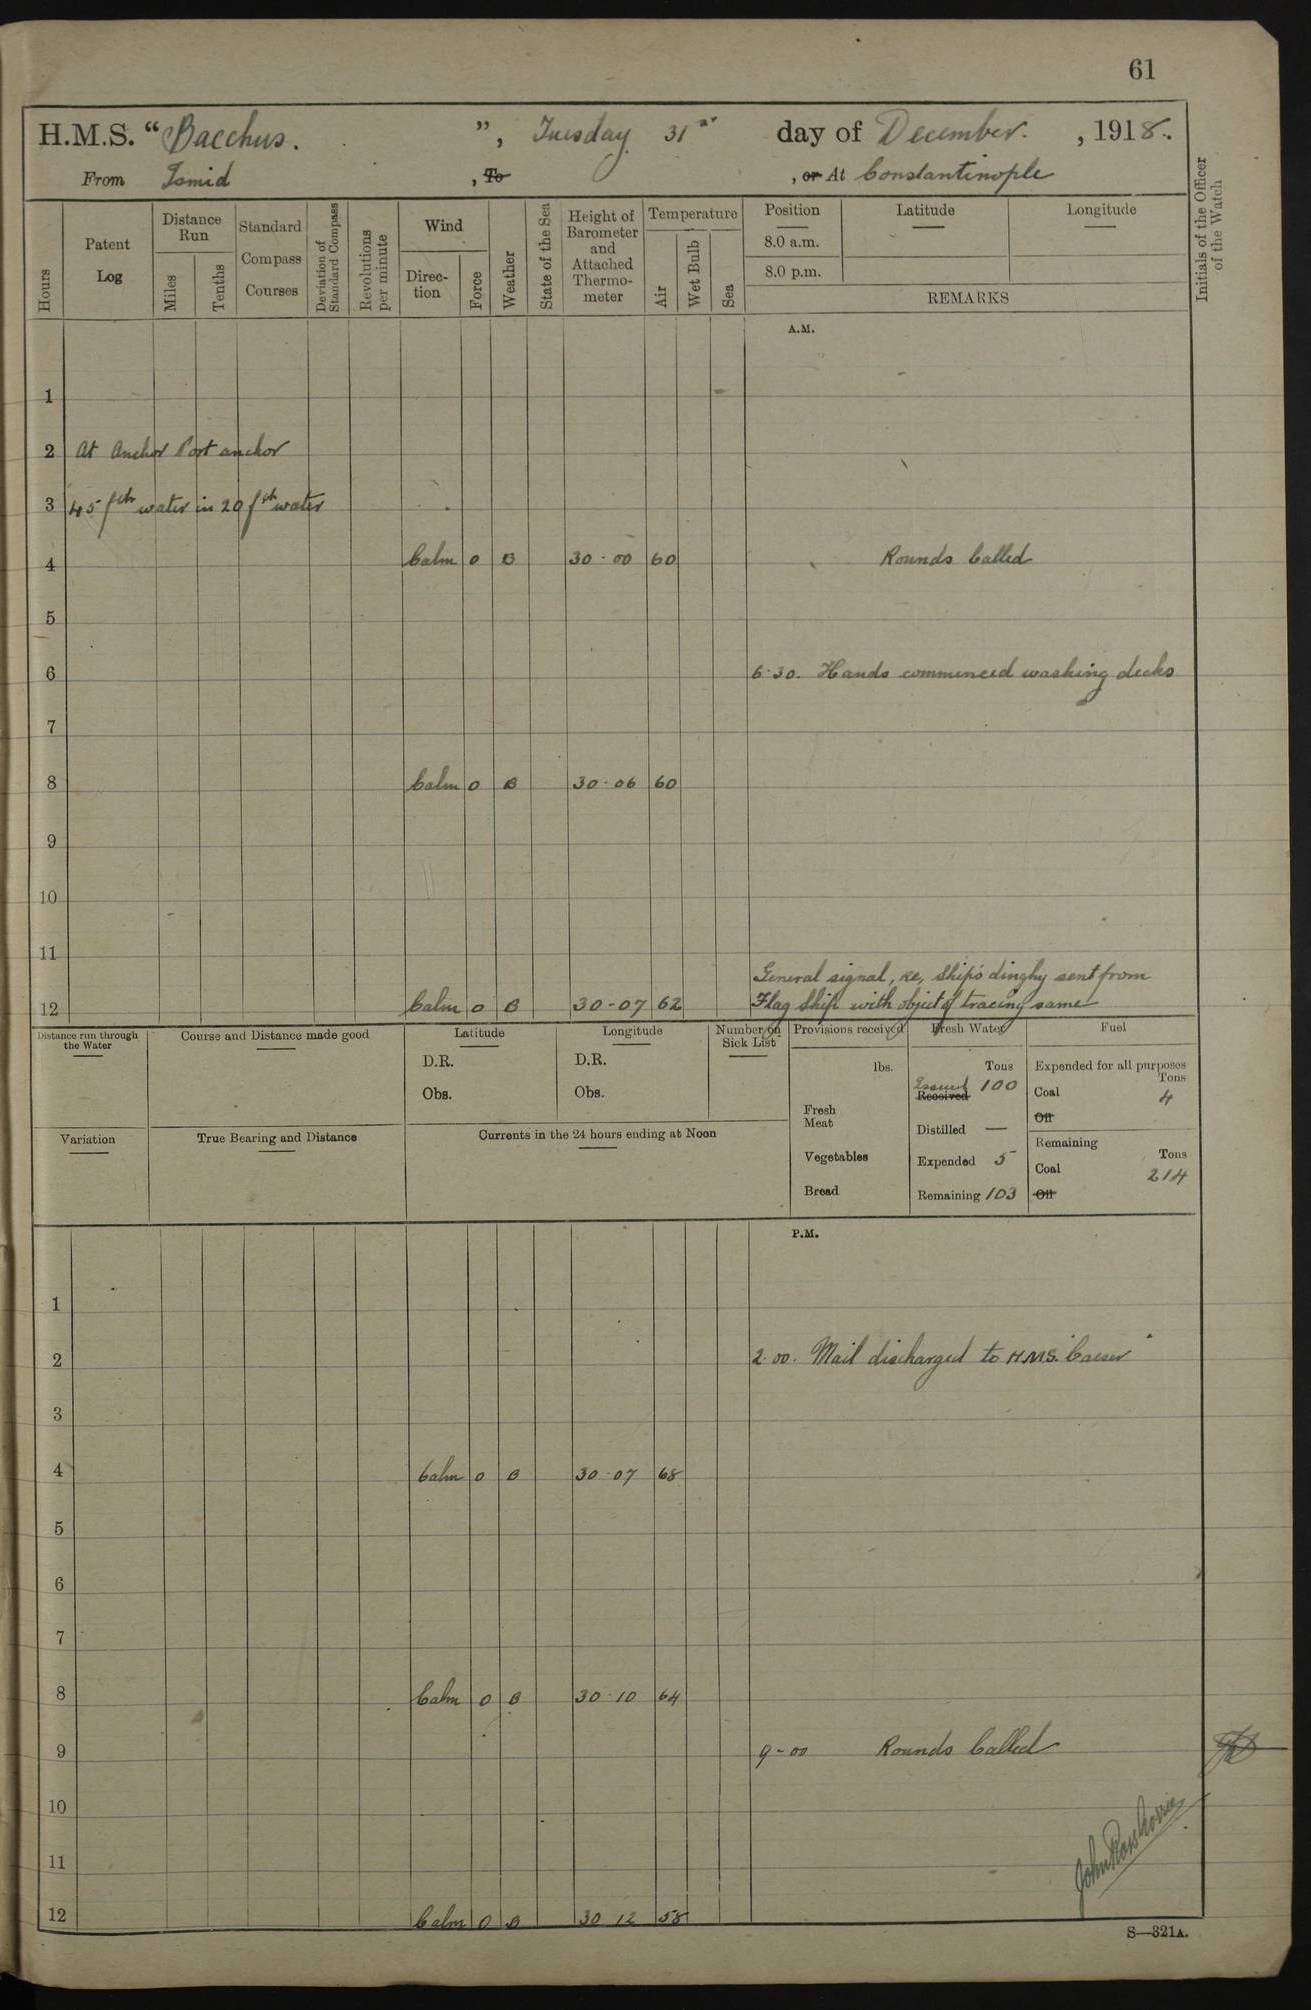 61
H.M.S. "Bacchus.", Tuesday 31st day of December, 1918.
From Ismid, To, or At Constantinople
Initials of the Officer of the Watch
Hours
Patent Log
Distance Run
Miles
Tenths
Standard Compass Courses
Deviation of Standard Compass
Revolutions per minute
Wind
Direction
Force
Weather
State of the Sea
Height of Barometer and Attached Thermometer
Temperature
Air
Wet Bulb
Sea
Position Latitude Longitude
8.0 a.m.
8.0 p.m.
REMARKS
A.M.
1
2 At Anchor Port anchor
3 45 fth water in 20 fth water
4 Calm 0 B 30-00 60 Rounds Called
5
6 6.30. Hands commenced washing decks
7
8 Calm 0 B 30-06 60
9
10
11
General signal, re, ship's dinghy sent from
12 Calm 0 B 30-07 62 Flag Ship with object of tracing same
Distance run through the Water
Course and Distance made good
Latitude
D.R.
Obs.
Longitude
D.R.
Obs.
Number on Sick List
Provisions received
lbs.
Fresh Meat
Vegetables
Bread
Fresh Water
Tons
Issued 100
Received
Distilled —
Expended 5
Remaining 103
Fuel
Expended for all purposes
Tons
Coal 4
Oil
Remaining
Tons
Coal 214
Oil
Variation
True Bearing and Distance
Currents in the 24 hours ending at Noon
P.M.
1
2 2.00. Mail discharged to H.M.S. "Caeser"
3
4 Calm 0 B 30-07 68
5
6
7
8 Calm 0 B 30-10 64
9 9-00 Rounds Called
10
11
12 Calm 0 B 30 12 58
S—321A.